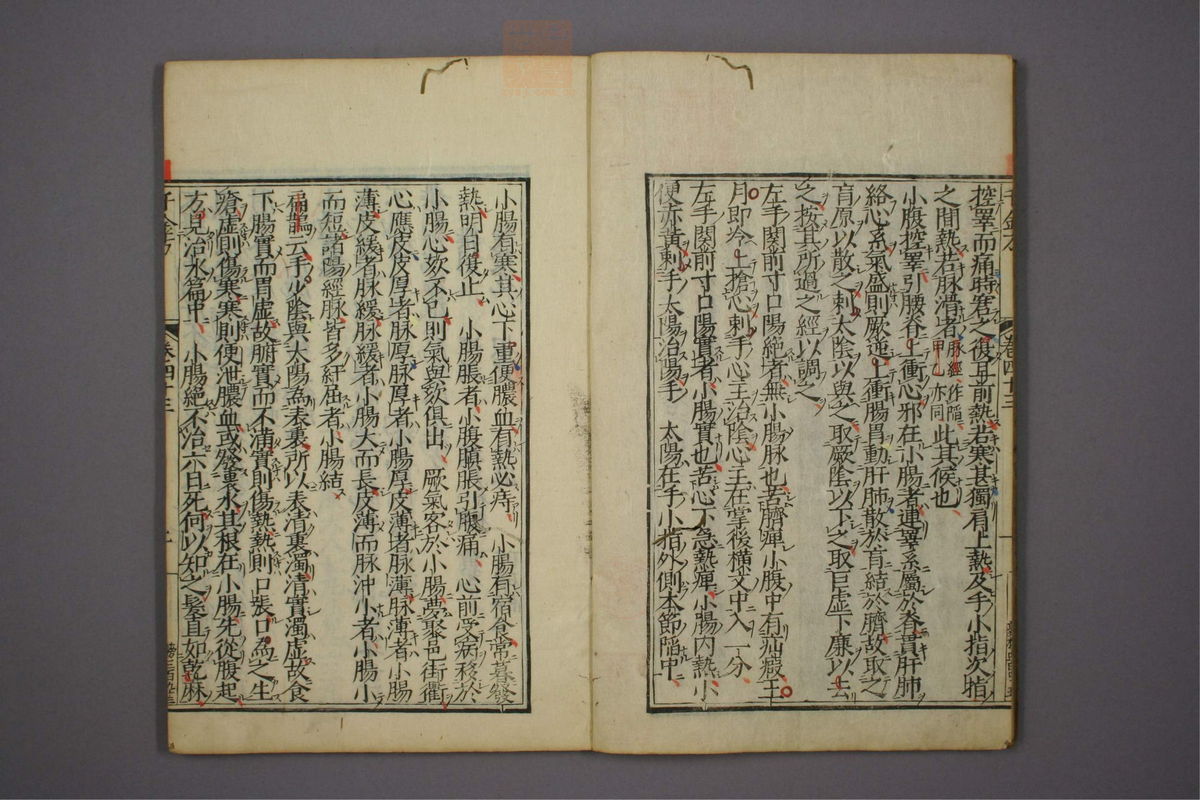 控睪而痛時窘之復耳前熱若寒甚獨肩上熱及手小指次指
之間熱若脉滑者脉經作陷甲乙亦同此其候也
小腹控睪引腰脊上衝心邪在小腸者連睪系屬於脊貫肝肺
絡心系氣盛則厥逆上衝腸胃動肝肺散於肓結於臍故取之
肓原以散之刺太陰以與之取厥陰以下之取巨虛下廉以去
之按其所過之經以調之
左手関前寸口陽絶者無小腸脉也苦臍痺小腹中有疝瘕王
月即冷上搶心刺手心主治陰心主在掌後横文中入一分
左手関前寸口陽實者小腸實也苦心下急熱痺小腸内熱小
便赤黄刺手太陽治陽手 太陽在手小指外側本節陷中
小腸有寒其人心下重便膿血有熱必痔 小腸有宿食常暮發
熱明日復止 小腸脹者小腹䐜脹引腹痛 心前受病移於
小腸心欬不已則氣與欬俱出 厥氣客於小腸夢聚邑街衢
心應皮皮厚者脉厚脉厚者小腸厚皮薄者脉薄脉薄者小腸
薄皮緩者脉緩脉緩者小腸大而長皮薄而脉沖小者小腸小
而短諸陽經脉皆多紆屈者小腸結
扁鵲云手少陰與太陽爲表裏所以表清裏濁清實濁虛故食
下腸實而胃虛故腑實而不滿實則傷熱熱則口張口爲之生
瘡虛則傷寒寒則便泄膿血或發裏水其根在小腸先從腹起
方見治水篇中 小腸絶不治六日死何以知之髮直如乾麻
千金方 卷四十三